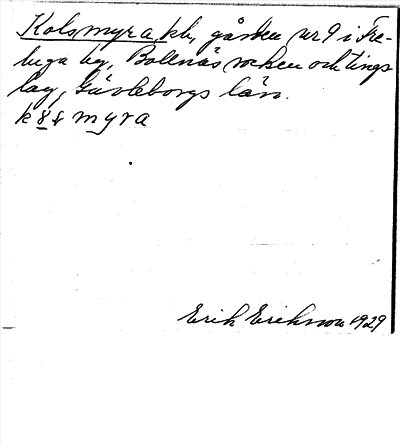 Kolsmyra, kh, gården nr 9 i Fre-
luga by, Bollnäs socken och tings
lag, Gävleborgs län.
myra
Erik Eriksson 1929